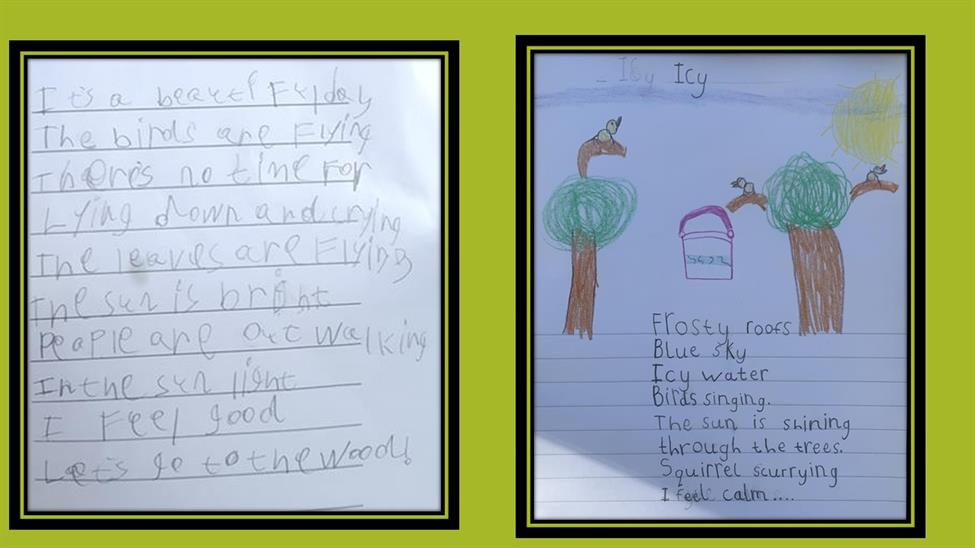 It's a beautiFul day
The birds are Flying
There's no time For
Lying down and crying
The leaves are Flying
The sun is bright
People are out walking
In the sun light
I Feel good
Let's go to the woods!
Icy
Frosty roofs
Blue sky
Icy water
Birds singing.
The sun is shining
through the trees.
Squirrel scurrying
I feel calm....